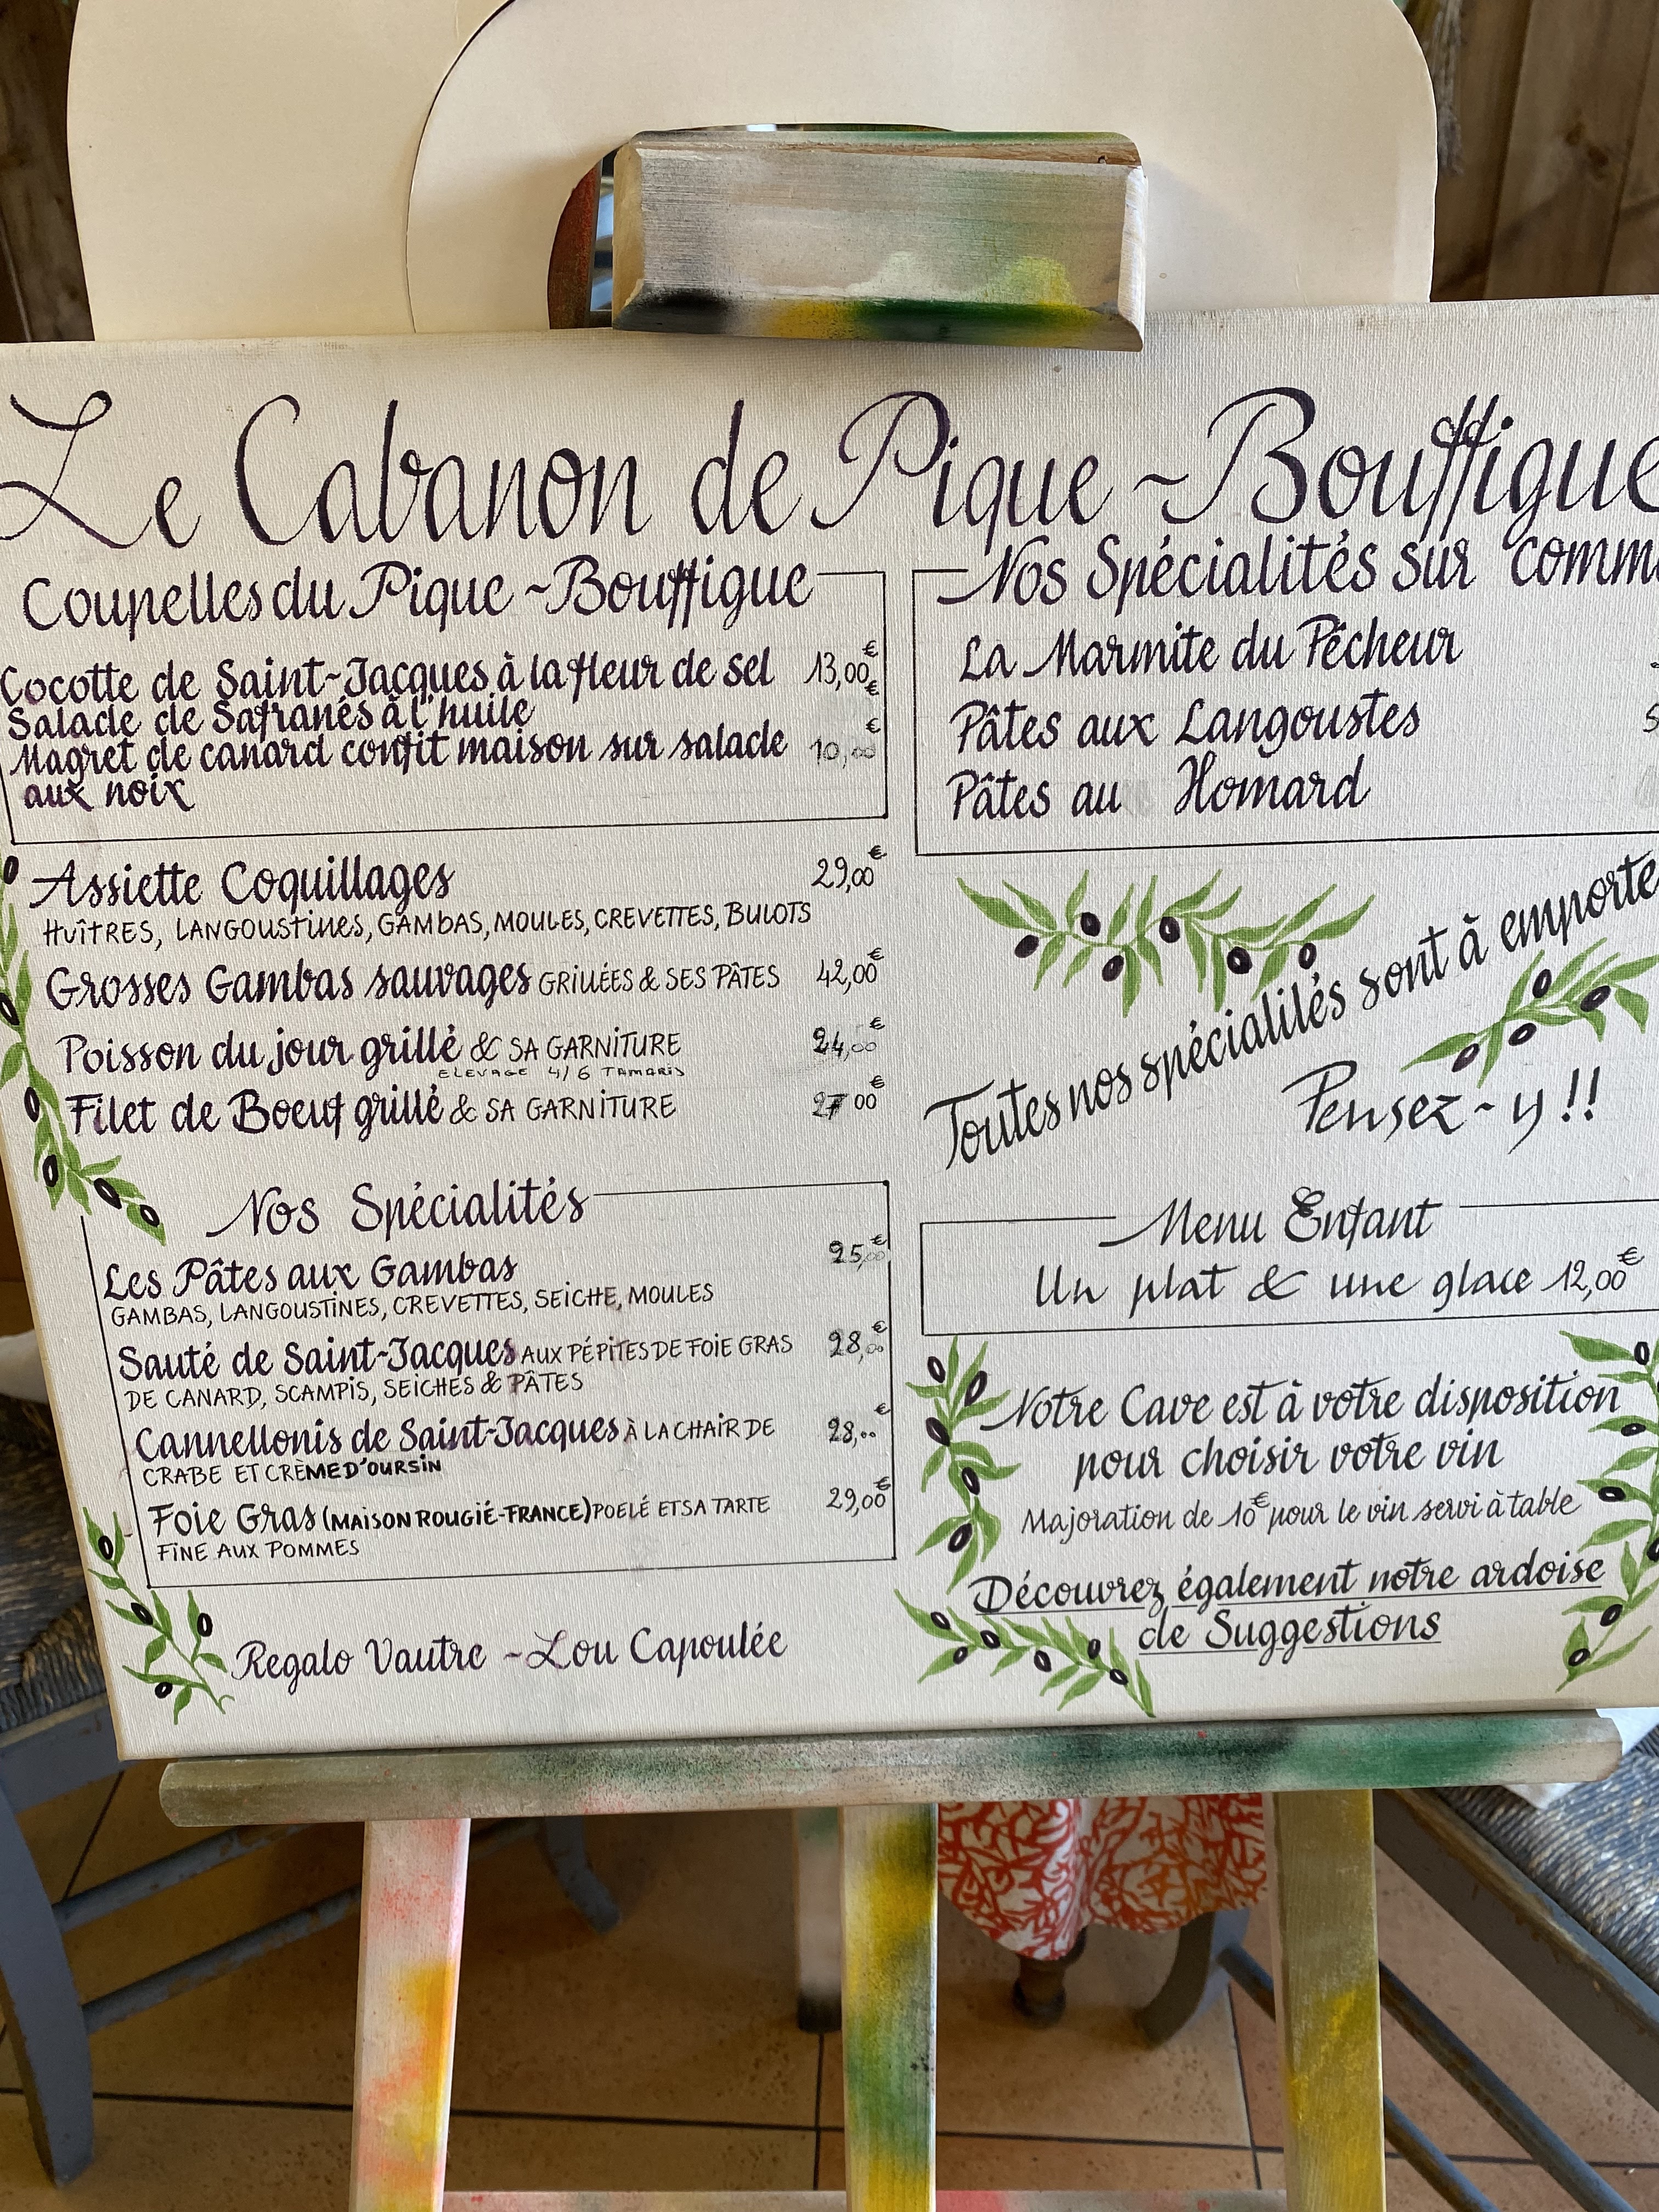 Le Cabanon de Pique~Bouffigue
Coupelles du Pique~Bouffigue
Cocotte de Saint-Jacques à la fleur de sel 13,00€
Salade de Safranés à l'huile €
Magret de canard confit maison sur salade 10,00€
aux noix
Assiette Coquillages 29,00€
HUÎTRES, LANGOUSTINES, GAMBAS, MOULES, CREVETTES, BULOTS
Grosses Gambas sauvages GRILLÉES & SES PÂTES 42,00€
Poisson du jour grillé & SA GARNITURE 24,00€
ELEVAGE 4/6 TAMARIS
Filet de Boeuf grillé & SA GARNITURE 27 00€
Nos Spécialités
Les Pâtes aux Gambas 25,00€
GAMBAS, LANGOUSTINES, CREVETTES, SEICHE, MOULES
Sauté de Saint-Jacques AUX PÉPITES DE FOIE GRAS 28,00€
DE CANARD, SCAMPIS, SEICHES & PÂTES
Cannellonis de Saint-Jacques À LA CHAIR DE 28,..€
CRABE ET CRÈME D'OURSIN
Foie Gras (MAISON ROUGIÉ-FRANCE) POELÉ ET SA TARTE 29,00€
FINE AUX POMMES
Regalo Vautre ~ Lou Capoulée
Nos Spécialités sur comm
La Marmite du Pêcheur
Pâtes aux Langoustes 5
Pâtes au Homard
Toutes nos spécialilés sont à emporte
Pensez-y!!
Menu Enfant
Un plat & une glace 12,00€
Notre Cave est à votre disposition
pour choisir votre vin
Majoration de 10€ pour le vin servi à table
Découvrez également notre ardoise
de Suggestions